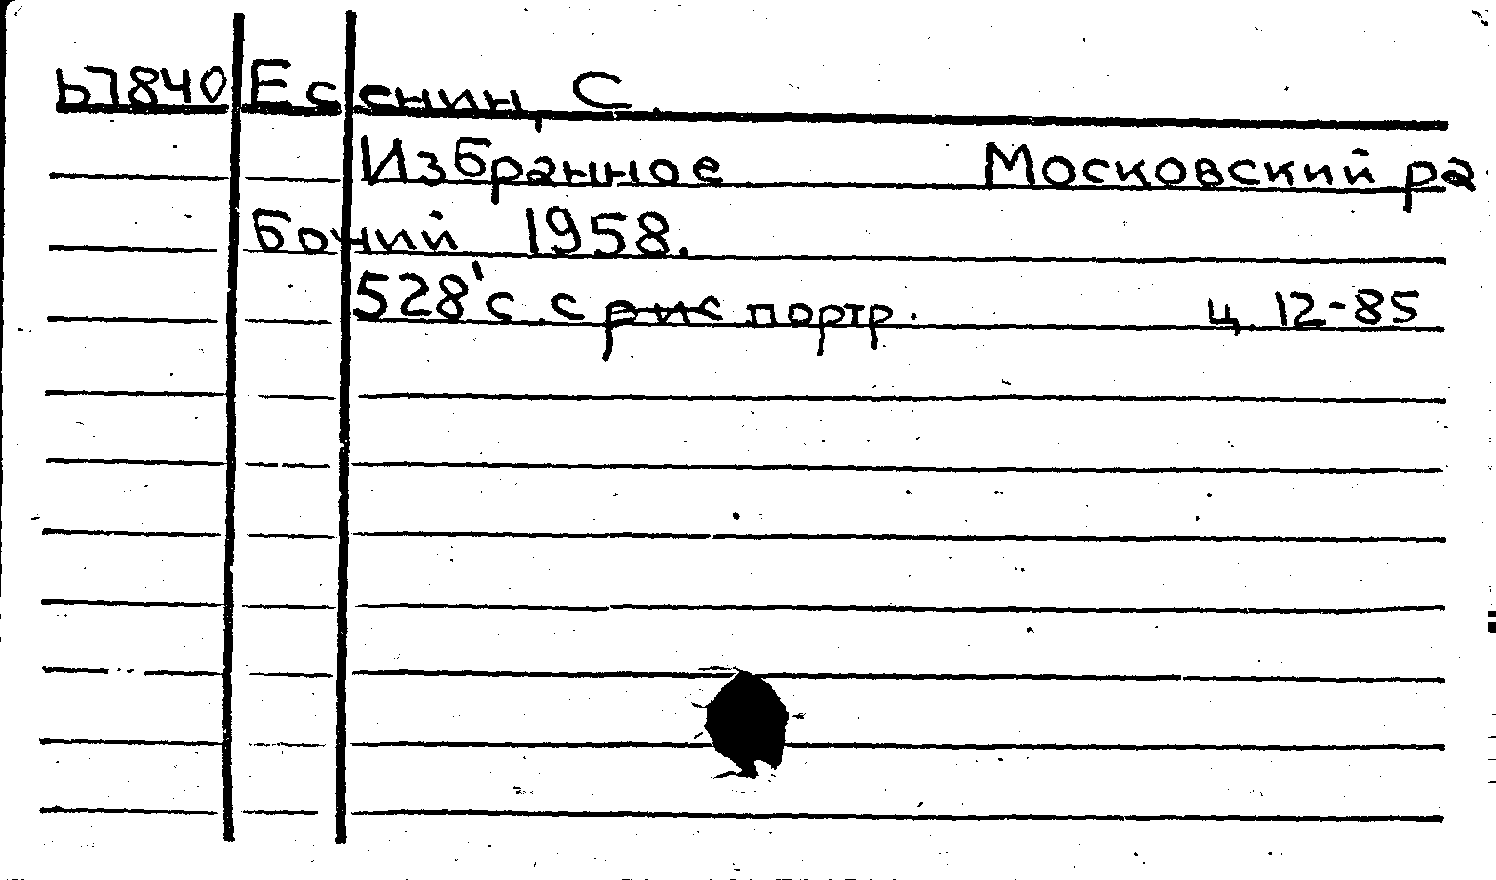 Ь7840 Есенин, С.
Избранное Московский ра
бочий 1958.
528' с. с рис портр. ц. 12-85